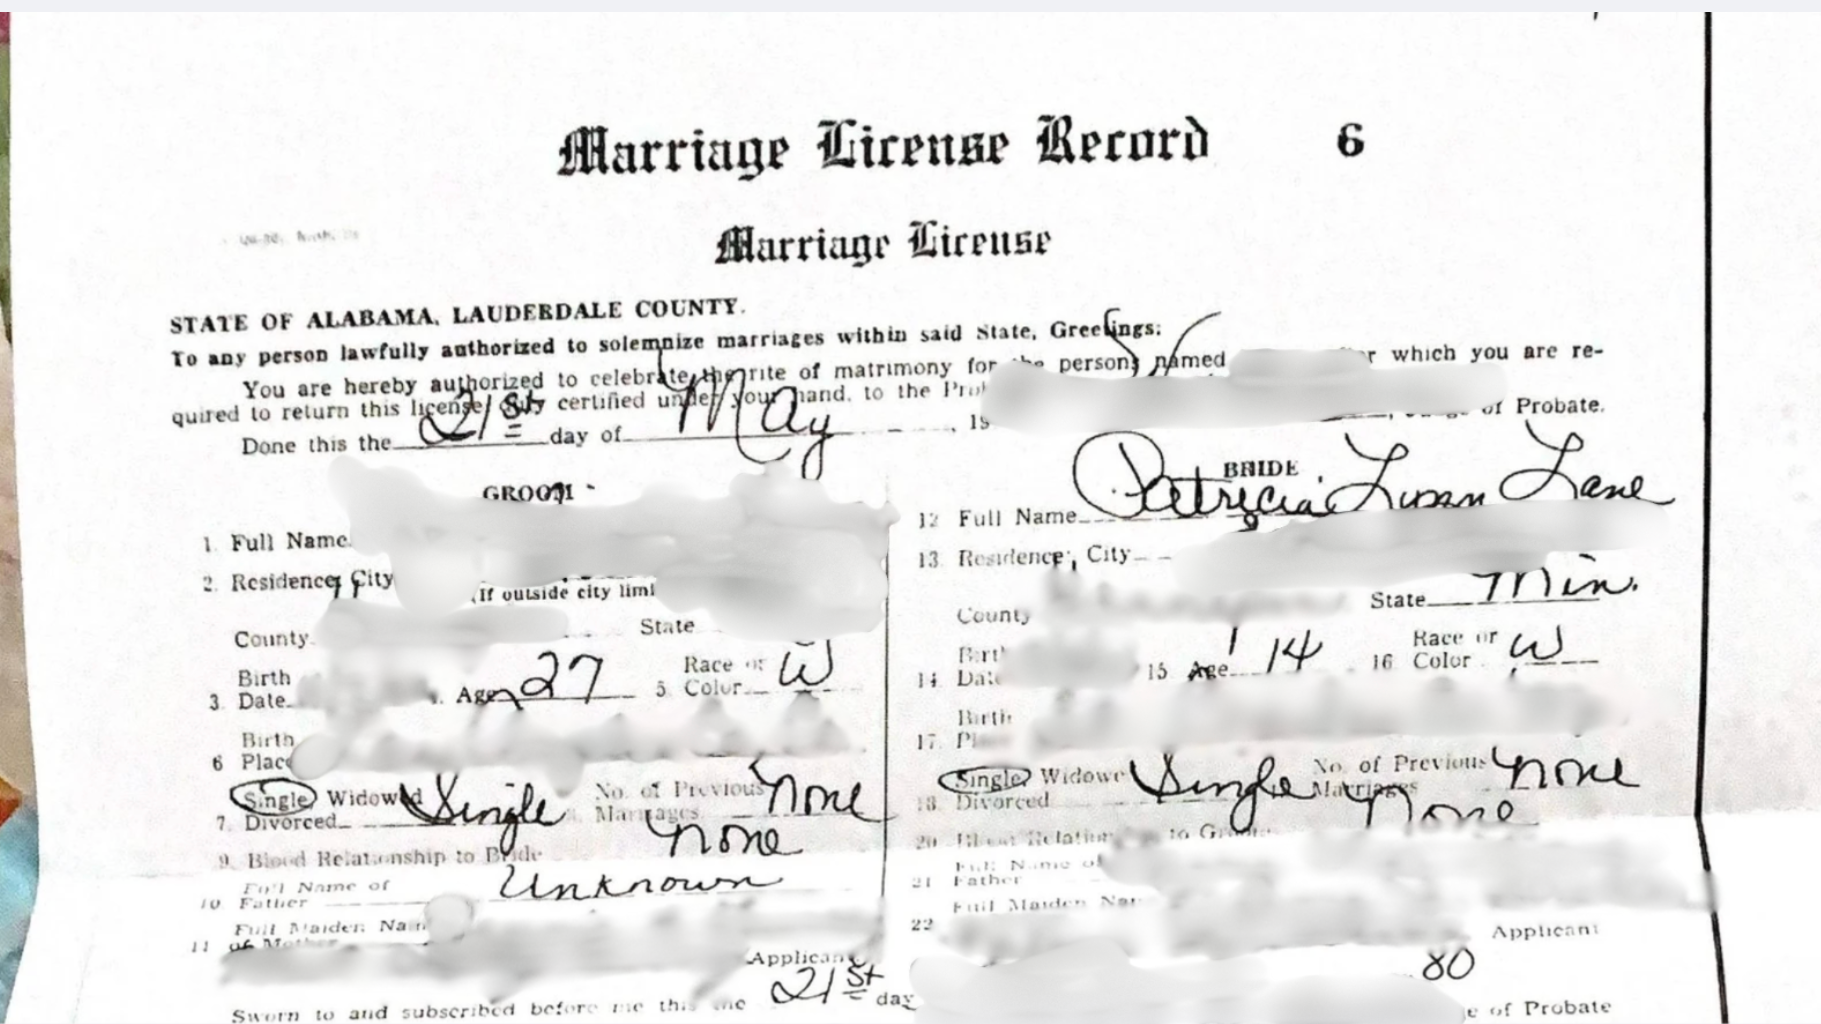 Marriage License Record 6
Marriage License
STATE OF ALABAMA, LAUDERDALE COUNTY.
To any person lawfully authorized to solemnize marriages within said State, Greetings:
You are hereby authorized to celebrate the rite of matrimony for the persons named which you are re-
quired to return this license, duly certified under your hand, to the of Probate.
Done this the 21st day of May, 19
GROOM
1. Full Name
2. Residence, City
(If outside city
County State
3 Birth Date Age 27 5 Race or Color W
6 Birth Place
7. Single Widowed Divorced Single No. of Previous Marriages None
9. Blood Relationship to Bride None
10 Full Name of Father Unknown
11 Full Maiden Name of Mother
Applicant
Sworn to and subscribed before me this the 21st day
BRIDE
12 Full Name Patricia Susan Lane
13 Residence, City
County State Min.
14 Date 15 Age 14 16 Race or Color W
17. Birth
18. Single Divorced Single No. of Previous Marriages None
20 to None
21 Full Name of Father
22 Full Maiden
Applicant
80
of Probate